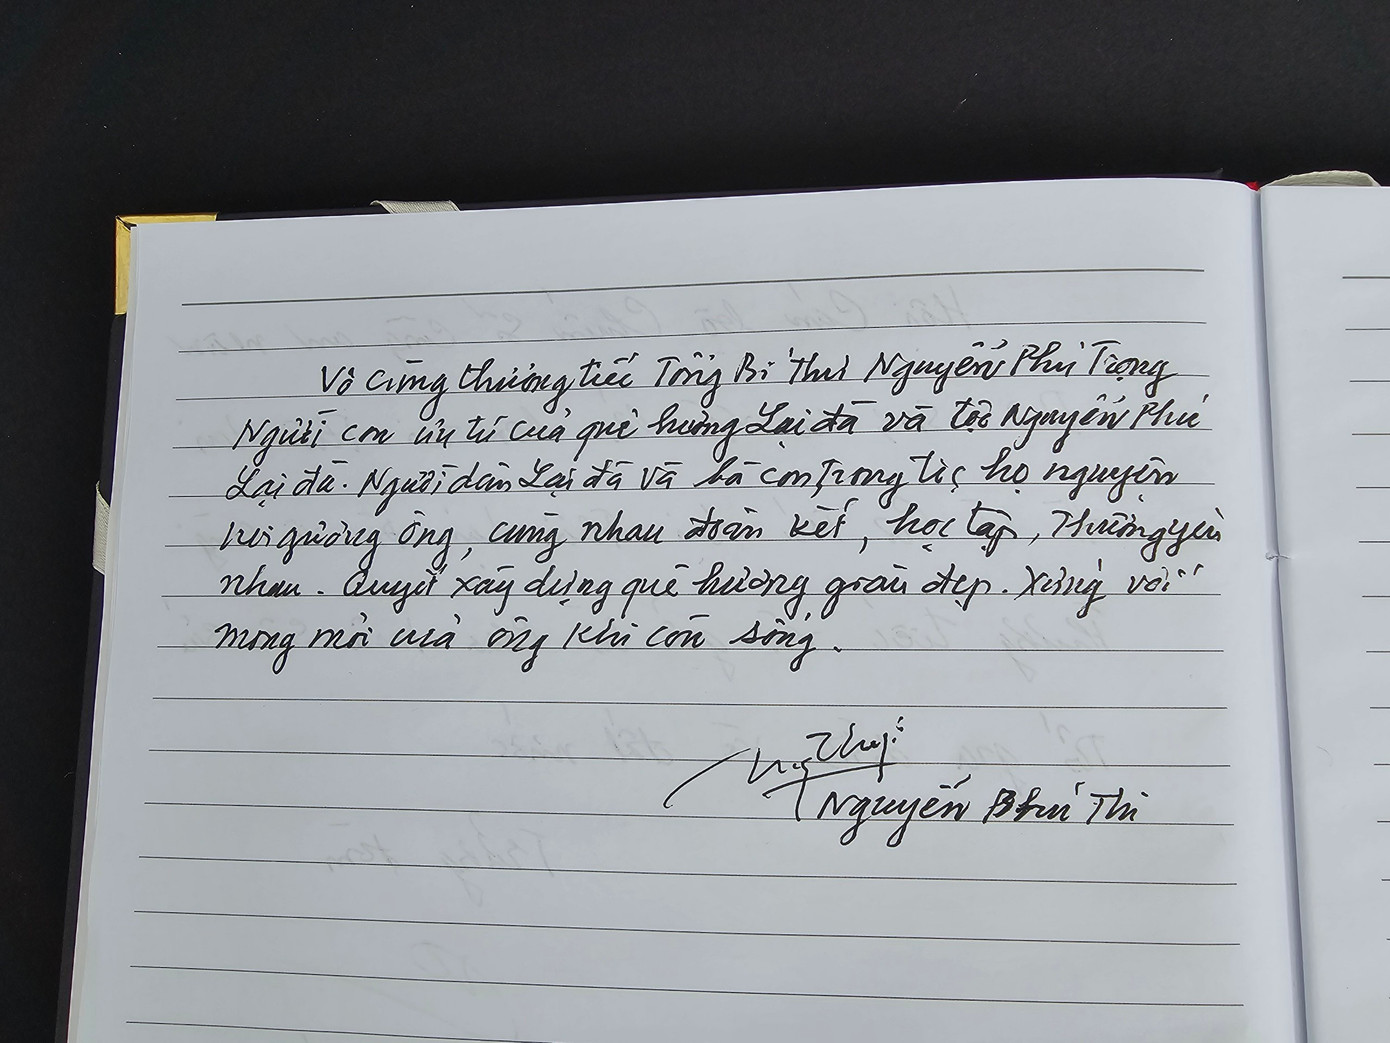 Vô cùng thương tiếc Tổng Bí Thư Nguyễn Phú Trọng
Người con ưu tú của quê hương Lại đà và tộc Nguyễn Phú
Lại đà. Người dân Lại đà và bà con trong tộc họ nguyện
noi gương ông, cùng nhau đoàn kết, học tập, thương yêu
nhau. Quyết xây dựng quê hương giàu đẹp. Xứng với
mong mỏi của ông khi còn sống.
Nguyễn Phú Thi